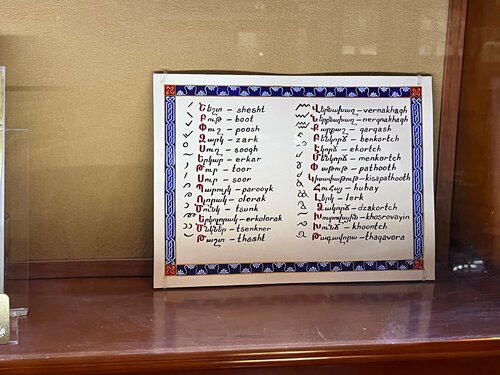 Շեշտ – shesht
Բութ – boot
Փուշ – poosh
Զարկ – zark
Սուղ – soogh
Երկար – erkar
Թուր – toor
Սուր – soor
Պարոյկ – parooyk
Ոլորակ – olerak
Ծունկ – tsunk
Երկոլորակ – erkolorak
Ծնկներ – tsenkner
Թաշտ – thasht
Վերնախաղ – vernakhagh
Ներքնախաղ – nerqnakhagh
Քարքաշ – qarqash
Բենկորճ – benkortch
Էկորճ – ekortch
Մենկորճ – menkortch
Փաթութ – pathooth
Կիսապաթութ – kisapathooth
Հուհայ – huhay
Լերկ – lerk
Ձակորճ – dzakortch
Խոսրովային – khosrovayin
Խունճ – khoontch
Թագավորա – thagavora